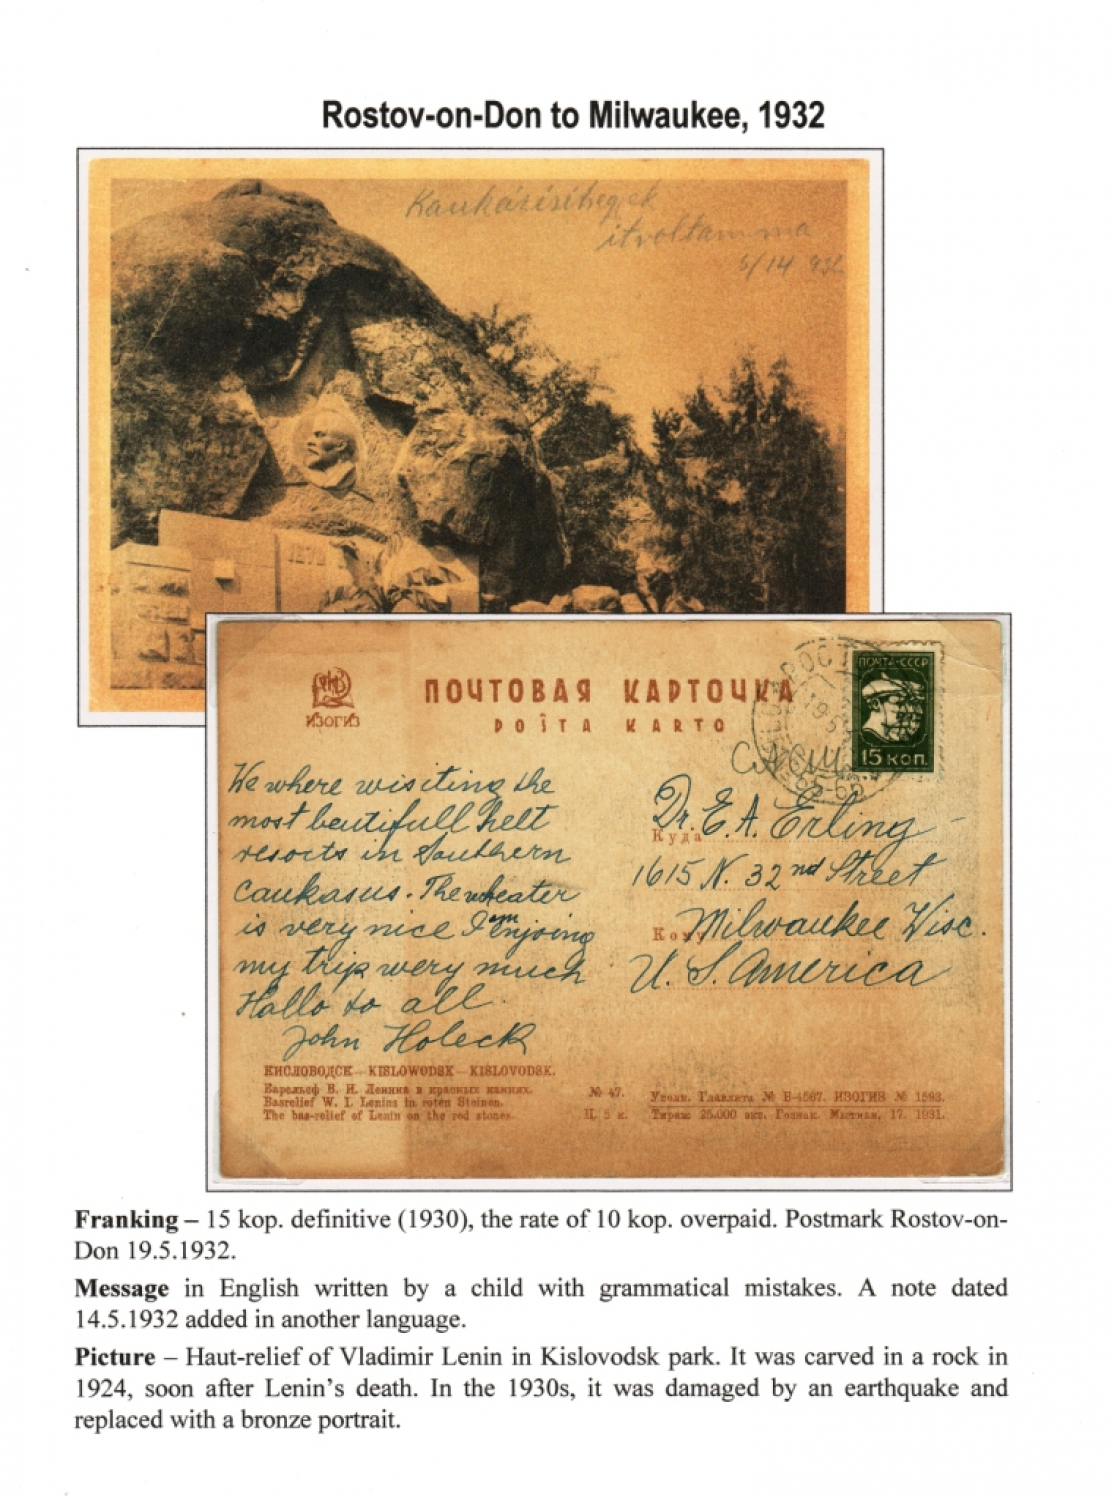 Rostov-on-Don to Milwaukee, 1932
Kaukázisihegyek
itvoltamma
5/14 932
1870
ИЗОГИЗ
ПОЧТОВАЯ КАРТОЧКА
POŜTA KARTO
ПОЧТА·СССР
15 КОП.
РОСТ
19 5
США
We where wisiting the
most beutifull helt
resorts in Southern
Caukasus. The wheater
is very nice I am enjoing
my trip wery much
Hallo to all.
John Holeck
Куда
Dr. E. A. Erling
1615 N. 32nd Street
Кому
Milwaukee Wisc.
U. S. America
КИСЛОВОДСК — KISLOWODSK — KISLOVODSK.
Барельеф В. И. Ленина в красных камнях.
Basrelief W. I. Lenins in roten Steinen.
The bas-relief of Lenin on the red stones.
№ 47.
Ц. 5 к.
Уполн. Главлита № В-4567. ИЗОГИЗ № 1593.
Тираж 25.000 экз. Гознак. Мытная, 17. 1931.
Franking – 15 kop. definitive (1930), the rate of 10 kop. overpaid. Postmark Rostov-on-
Don 19.5.1932.
Message in English written by a child with grammatical mistakes. A note dated
14.5.1932 added in another language.
Picture – Haut-relief of Vladimir Lenin in Kislovodsk park. It was carved in a rock in
1924, soon after Lenin's death. In the 1930s, it was damaged by an earthquake and
replaced with a bronze portrait.